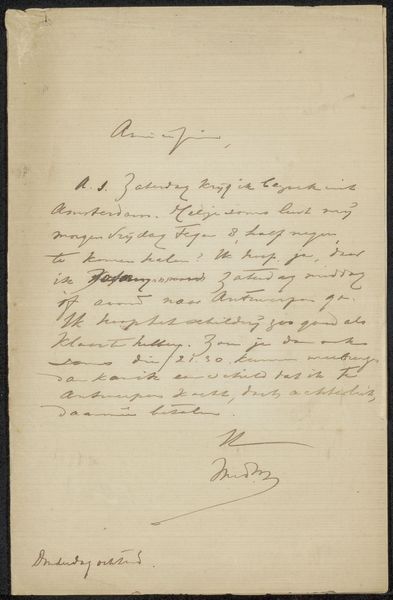 Amice
a.s. Zaterdag krijg ik bezoek uit
Amsterdam. Heb je soms lust mij
morgen Vrijdag tegen 8, half negen
te komen halen? Ik hoop ja, daar
ik Zaterdag middag
of avond naar Antwerpen ga.
Ik hoop het schilderij zoo goed als
klaar te hebben. Zou je dan ook
soms die 2 30 kunnen
dan kan ik een schild dat ik te
Antwerpen kocht, doch achterliet,
daarmee betalen.
Donderdag ochtend.